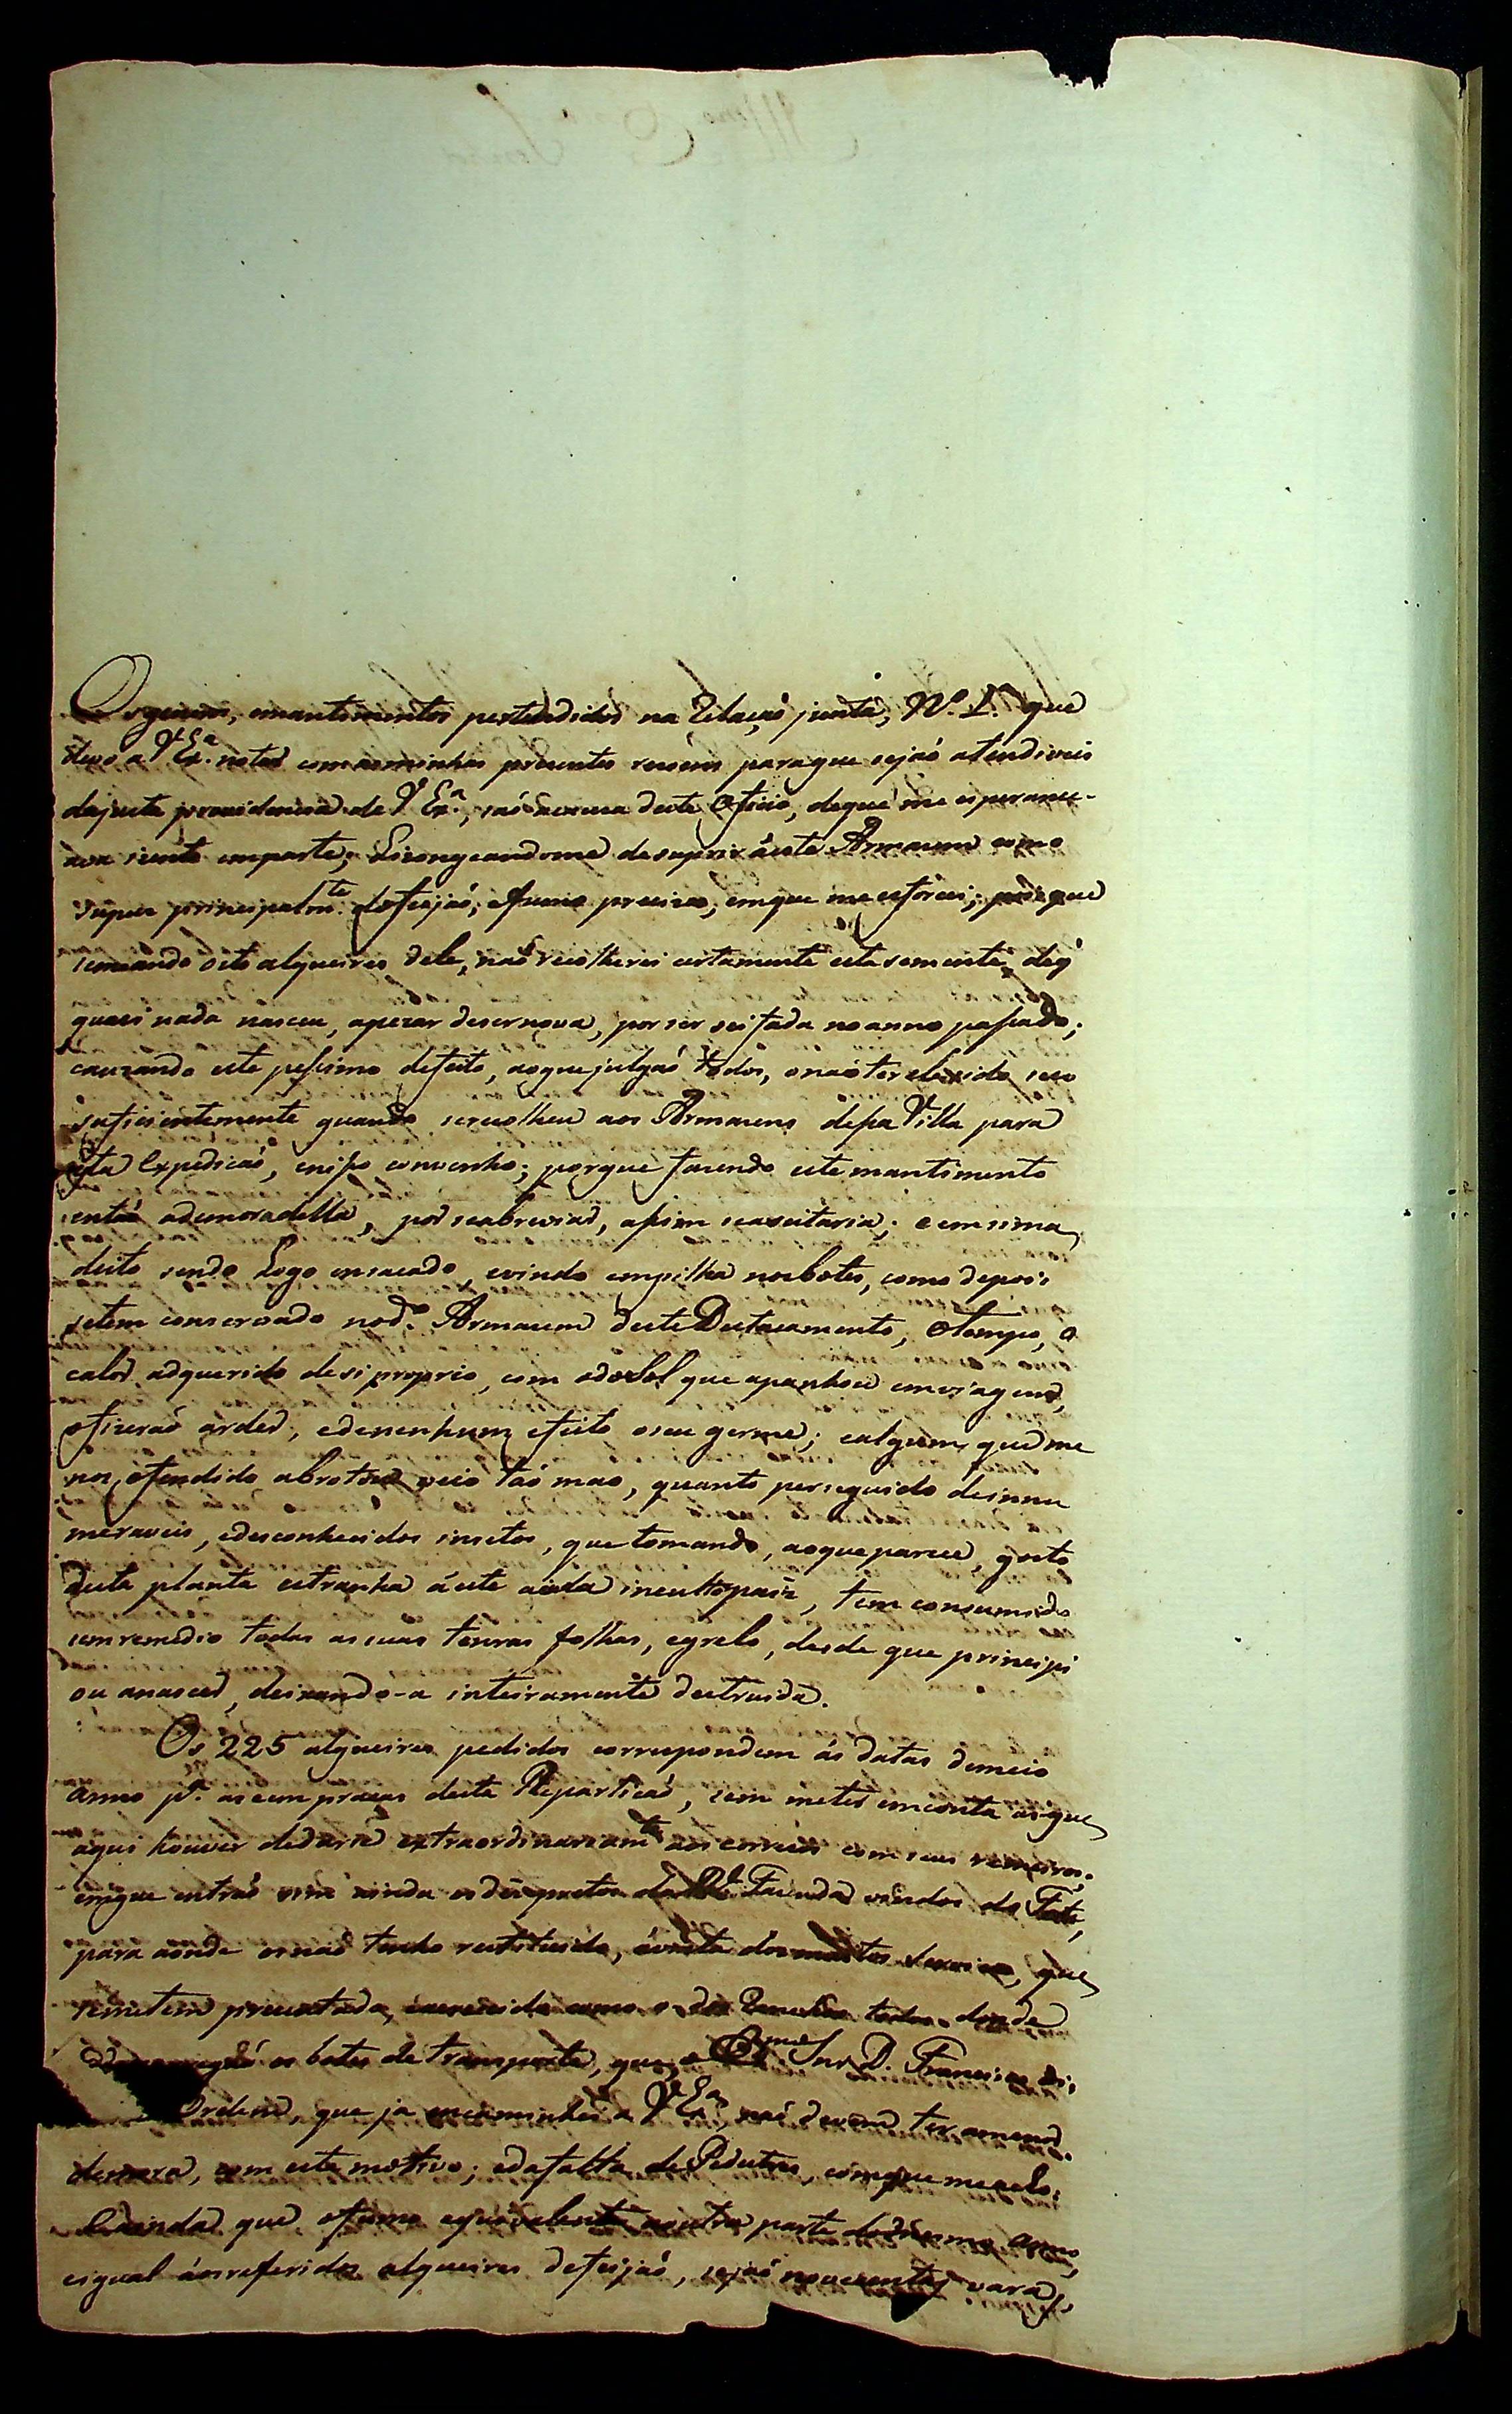 Os generos, emantimentos pertendidos na Relaçaõ junta, Nº. 1º. que
devo a VExª. notar comasminhas presentes rasoens paraque sejaõ atendiveis
dajusta providencia de VExª, saõ acauza deste Oficio, deque me esperance-
ava isento emparte; Lisongeandome desuprir áeste Armazem como
supus principalmte. defeijaõ; efumo precizo, emque me esforcei; porque
semeando oito alqueires dele, naõ recolherei certamente esta semente, deq̃
quasi nada nasceu, apezar desernova, porser seifada noanno passado;
cauzando este pessimo defeito, aoquejulgaõ todos, onaõter seco
suficientemente quando serecolheu aos Armazens dessa Villa para
esta Expedicaõ, enisso convenho; porque fazendo este mantimento
entaõ ademoradella, por seabreviar, assim seaceitaria; e emsima
disto sendo Logo ensacado, evindo empilha nosbotes, como depois
setem conservado nodº. Armazem deste Destacamento, otempo, o
calor adquerido desi proprio, com odoSol que apanhou emviagem,
ofizeraõ arder, edenenhum efeito oseu germe; ealgum, que me
nos ofendido abrotou veio taõ mao, quanto perseguido deinnu
meraveis, edesconhecidos insetos, que tomando, aoqueparece, gosto
desta planta estranha áeste ainda incultopaiz, tem consumido
semremedio todas assuas tenras folhas, egrelo, desde que principi
ou anascer, deixando-a inteiramente destruida.
Os 225 alqueires pedidos correspondem ás datas demeio
anno pª. ascem praças desta Reparticaõ, sem meter emconta asque
aqui houver dedarse extraordinariamte aos correios comseus remeiros,
emque entraõ ainda os da Rl. Fazenda vindos do Forte,
para aonde osnaõ tenho restituido, ávista dos que
remetem donde
os botes de transporte, que o Exmo. Snr D. Francisco
Ordem, que ja encaminhei a VExª, naõ devem ter
demora, com este motivo; edafalta de comque
que ofumo equivalente aoutra parte domesmo anno,
eigual áosreferidos alqueires defeijaõ, sejaõ novecentas varas,